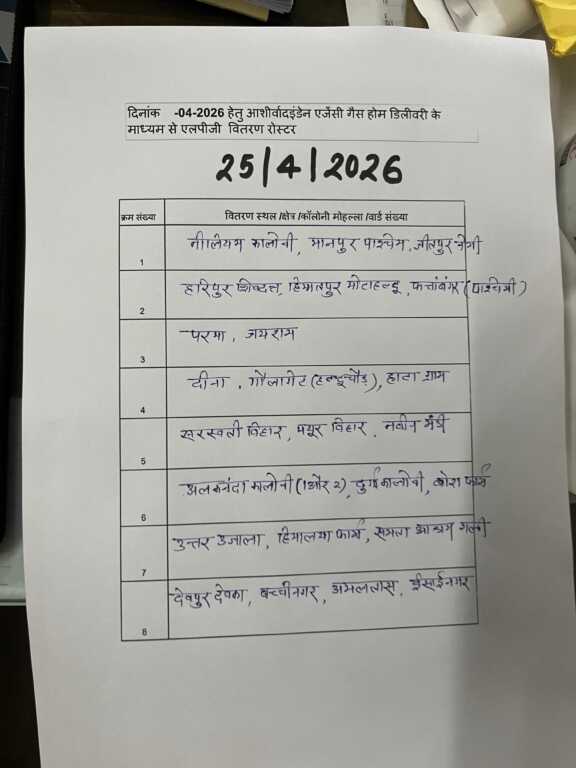 दिनांक -04-2026 हेतु आशीर्वादइंडेन एजेंसी गैस होम डिलीवरी के
माध्यम से एलपीजी वितरण रोस्टर
25/4/2026
क्रम संख्या वितरण स्थल /क्षेत्र /कॉलोनी मोहल्ला /वार्ड संख्या
1 नीलियम कालोनी, मानपुर पश्चिम, जीतपुर नेगी
2 हरिपुर शिवदत्त, हिम्मतपुर मोटाहल्दू, फत्ताबंगर (पश्चिमी)
3 परमा, जयराम
4 दीना, गौलागेट (हल्दूचौड़), हाता ग्राम
5 सरस्वती विहार, मयूर विहार, नवीन मंडी
6 अलकनंदा कालोनी (1 और 2), दुर्गा कालोनी, बोरा फार्म
7 उत्तर उजाला, हिमालया फार्म, समता आश्रम गली
8 देवपुर देवका, बच्चीनगर, अमलतास, ईसाईनगर